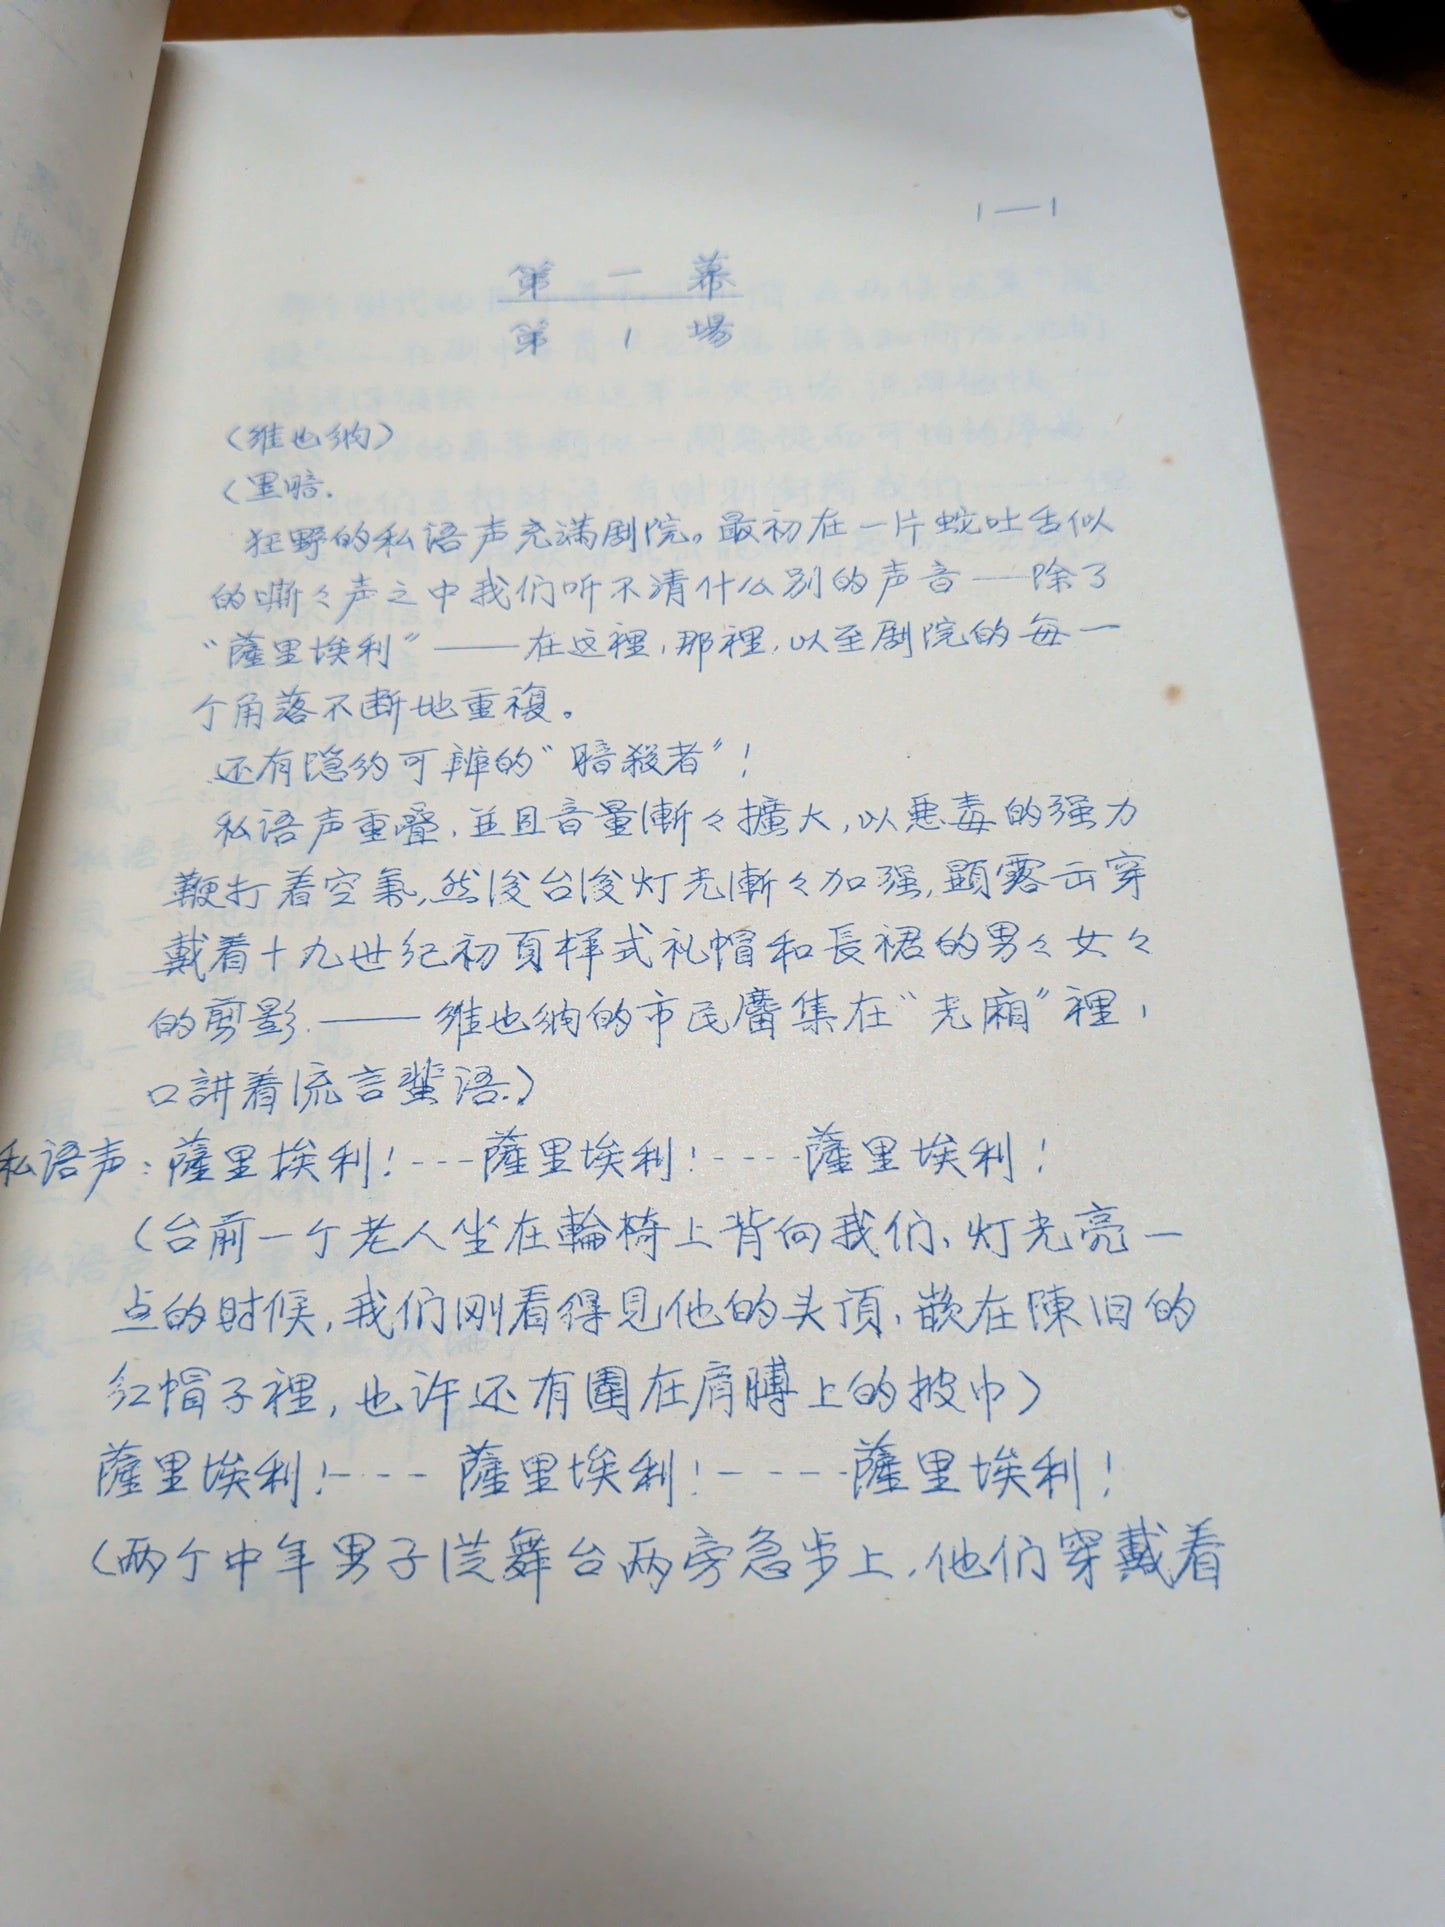 1—1
第一幕
第1場
(维也纳)
(黑暗.
狂野的私语声充满剧院。最初在一片蛇吐舌似
的嘶々声之中我们听不清什么别的声音——除了
“薩里埃利”——在这裡,那裡,以至剧院的每一
个角落不断地重複。
还有隐约可辨的“暗殺者”!
私语声重疊,並且音量漸々擴大,以悪毒的强力
鞭打着空氣,然後台後灯光漸々加强,顕露出穿
戴着十九世纪初頁样式礼帽和長裙的男々女々
的剪影.——维也纳的市民麕集在“光廂”裡,
口講着流言蜚语.)
私语声:薩里埃利!---薩里埃利!----薩里埃利!
(台前一个老人坐在輪椅上背向我们、灯光亮一
点的时候,我们刚看得見他的头頂,嵌在陳旧的
红帽子裡,也许还有圍在肩膊上的披巾)
薩里埃利!---薩里埃利!----薩里埃利!
(两个中年男子従舞台两旁急步上,他们穿戴着